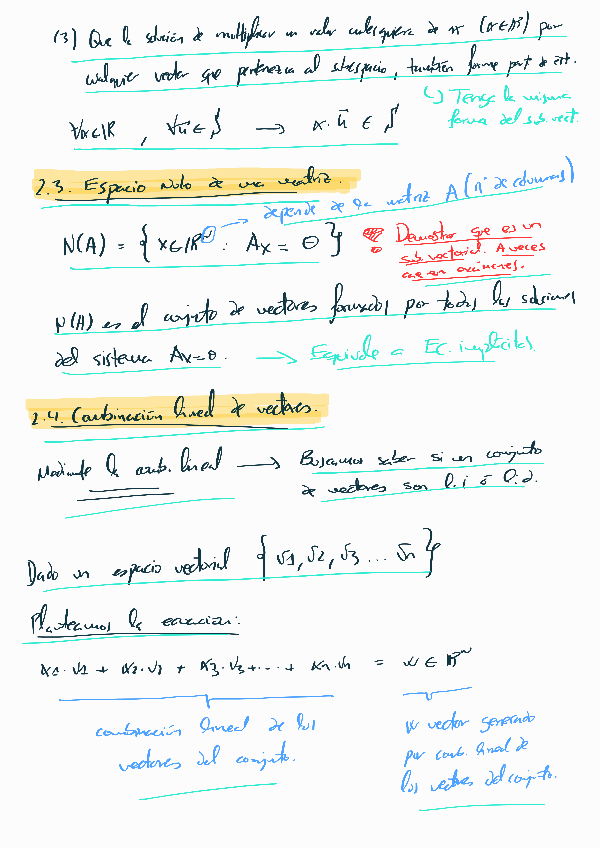 (3) Que la solución de multiplicar un valor cualesquiera de α (α∈ℝ) por
cualquier vector que pertenezca al subespacio, también forme part de est.
↳ Tenga la misma
forma del sub.vect.
∀α∈ℝ , ∀ū∈S → α·ū ∈ S
2.3. Espacio Nulo de una matriz.
depende de la matriz A (nº de columnas)
N(A) = { x∈ℝⁿ : Ax = θ }
Demostrar que es un
sub.vectorial. A veces
cae en exámenes.
N(A) es el conjunto de vectores formados por todas las soluciones
del sistema Ax=θ. → Equivale a EC. implícitas.
2.4. Combinación lineal de vectores.
Mediante la comb. lineal → Buscamos saber si un conjunto
de vectores son l.i ó l.d.
Dado un espacio vectorial { v1, v2, v3 ... vn }
Planteamos la ecuación:
α1·v1 + α2·v2 + α3·v3+...+ αn·vn = w ∈ ℝⁿ
combinación lineal de los
vectores del conjunto.
w vector generado
por comb. lineal de
los vectores del conjunto.